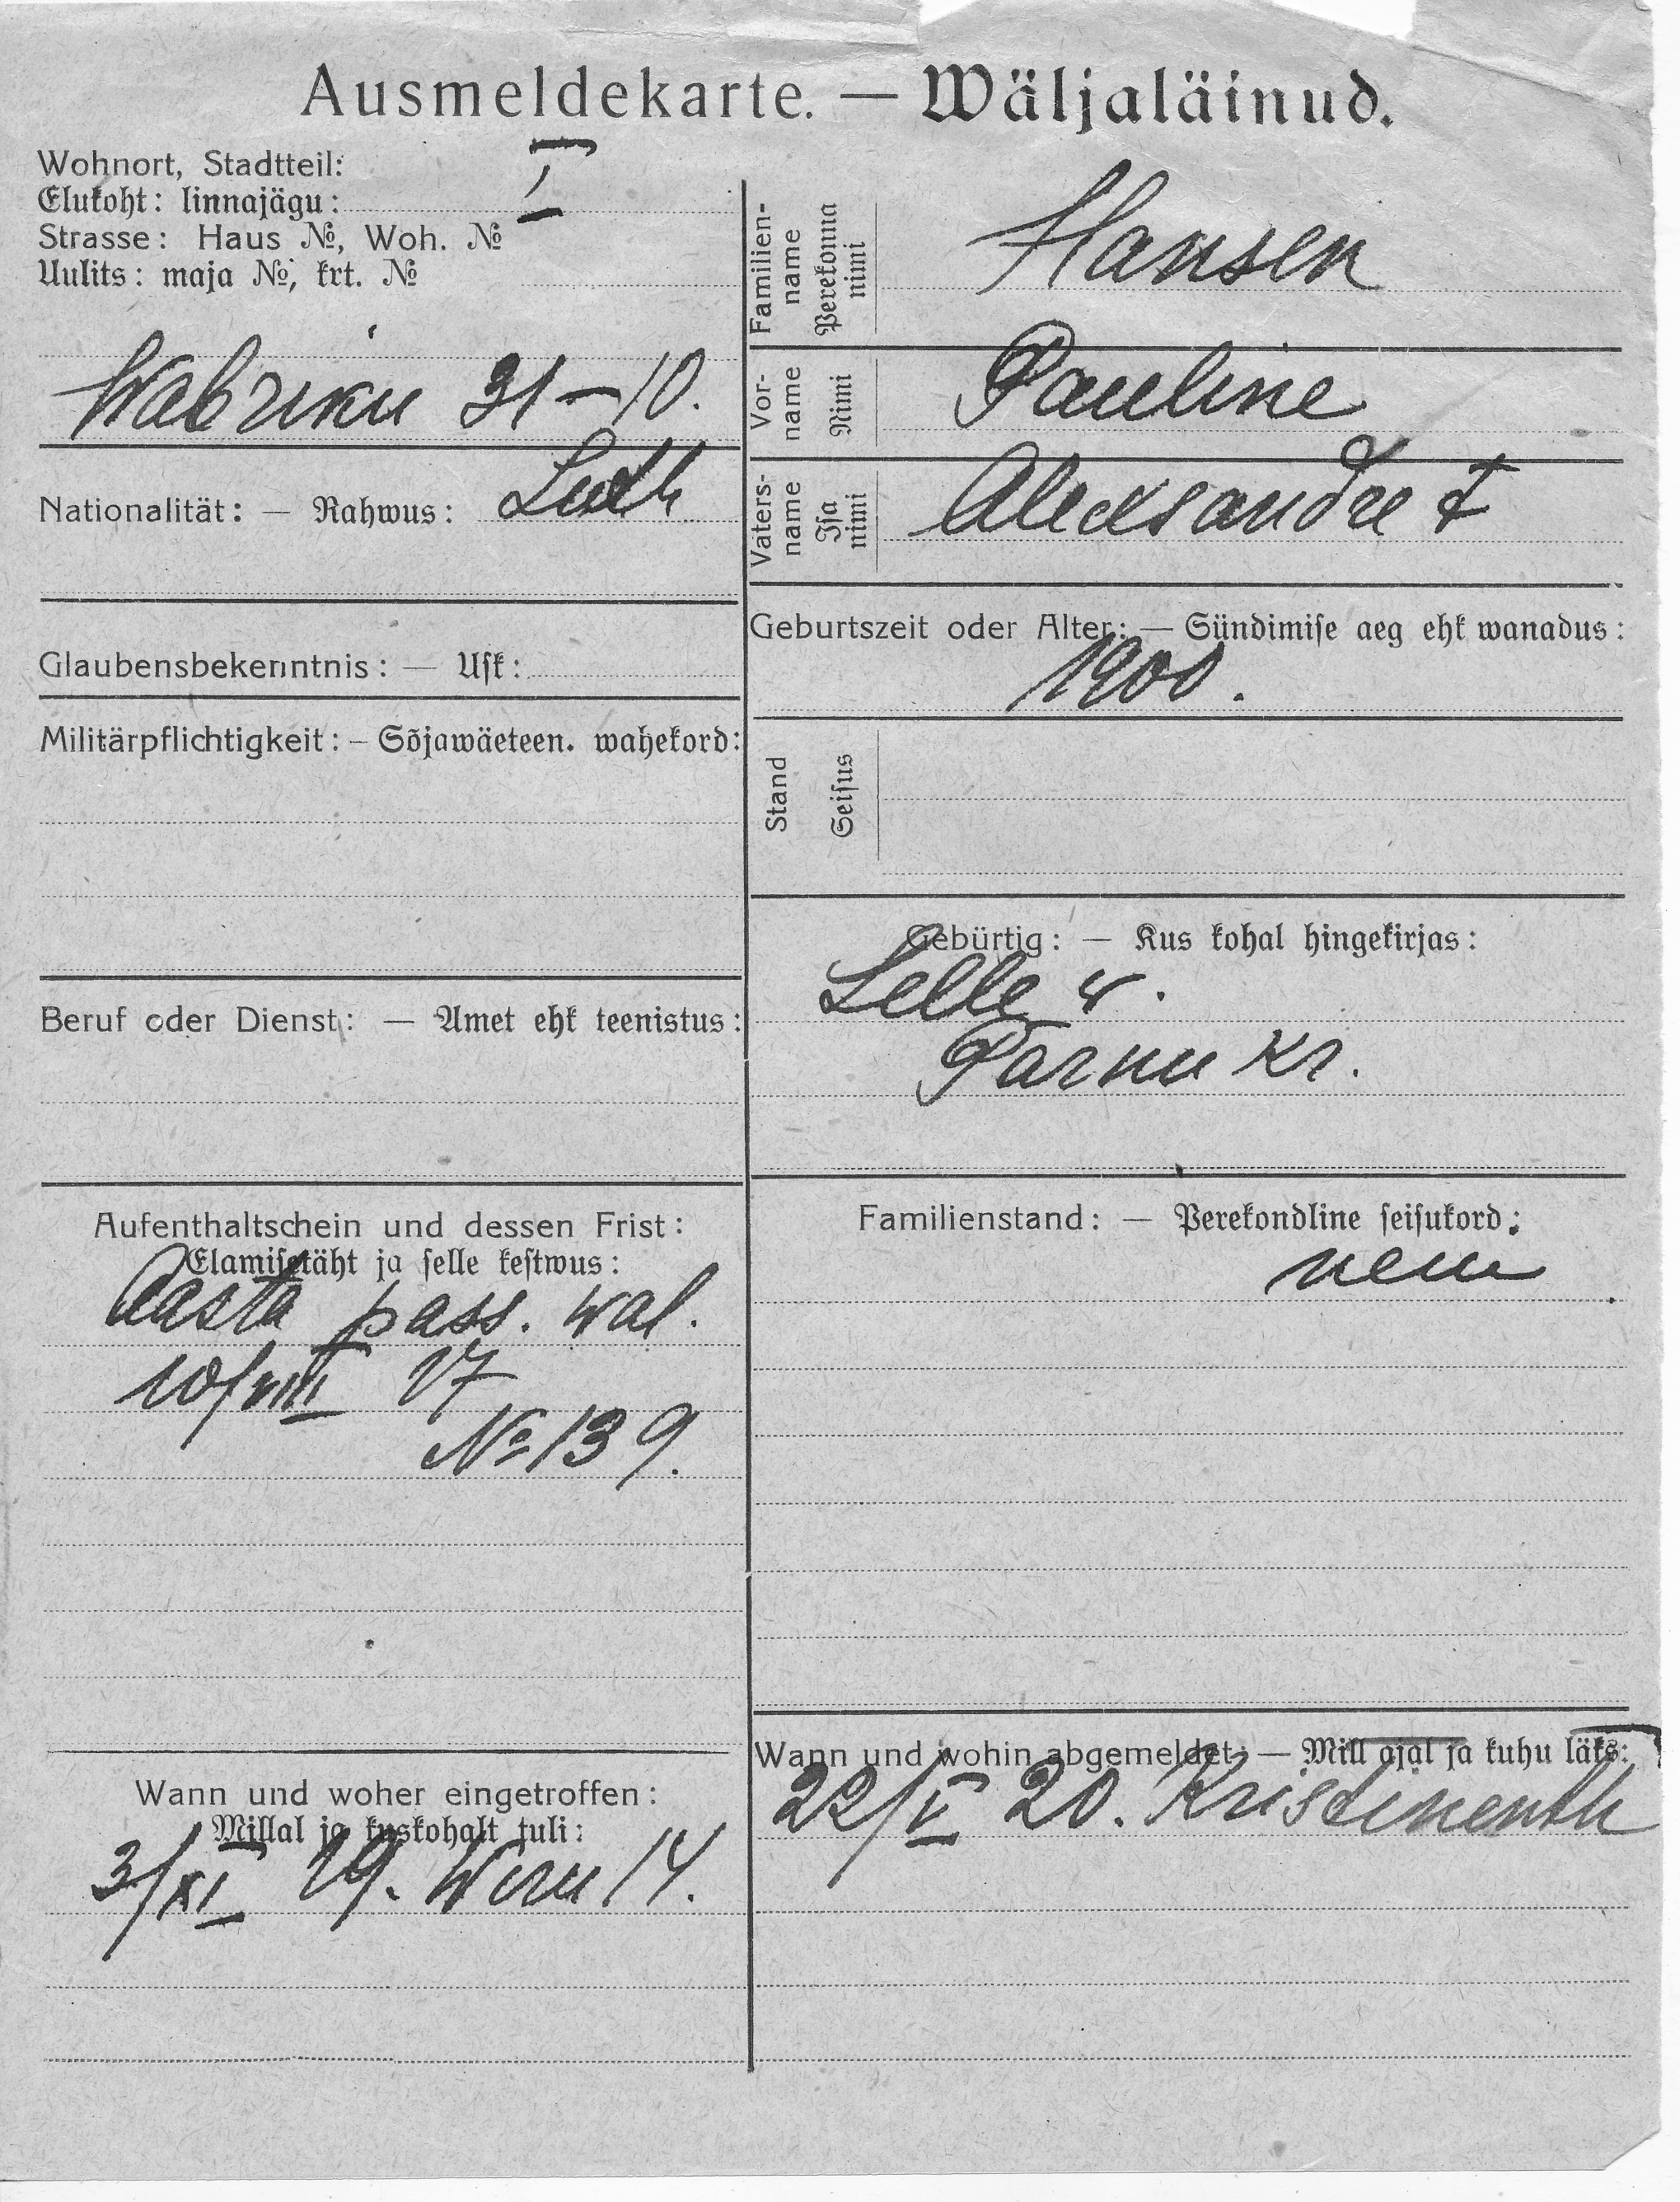 Ausmeldekarte. — Wäljaläinud.
Wohnort, Stadtteil:
Elukoht: linnajägu: I
Strasse: Haus №, Woh. №
Uulits: maja №, krt. №
Wabriku 31-10.
Nationalität: — Rahwus: Luth
Glaubensbekenntnis: — Usk:
Militärpflichtigkeit: – Sõjawäeteen. wahekord:
Beruf oder Dienst: — Amet ehk teenistus:
Aufenthaltschein und dessen Frist:
Elamisetäht ja selle kestwus:
Aasta pass. wal.
10/VIII 17
№ 139.
Wann und woher eingetroffen:
Millal ja kuskohalt tuli:
3/XI 19. Wiru 14.
Familien-
name
Perekonna
nimi
Hansen
Vor-
name
Nimi
Pauline
Vaters-
name
Isa
nimi
Alecsandre t
Geburtszeit oder Alter: — Sündimise aeg ehk wanadus:
1900.
Stand
Seisus
Gebürtig: — Kus kohal hingekirjas:
Lelle w.
Parnu kr.
Familienstand: — Perekondline seisukord:
neiu
Wann und wohin abgemeldet: — Mill ajal ja kuhu läks:
22/V 20. Kristinenth